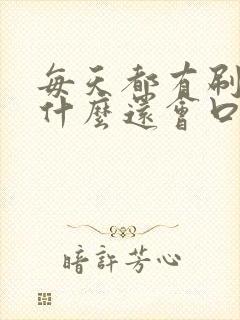 每天都有刷
什麼還會口
暗許芳心